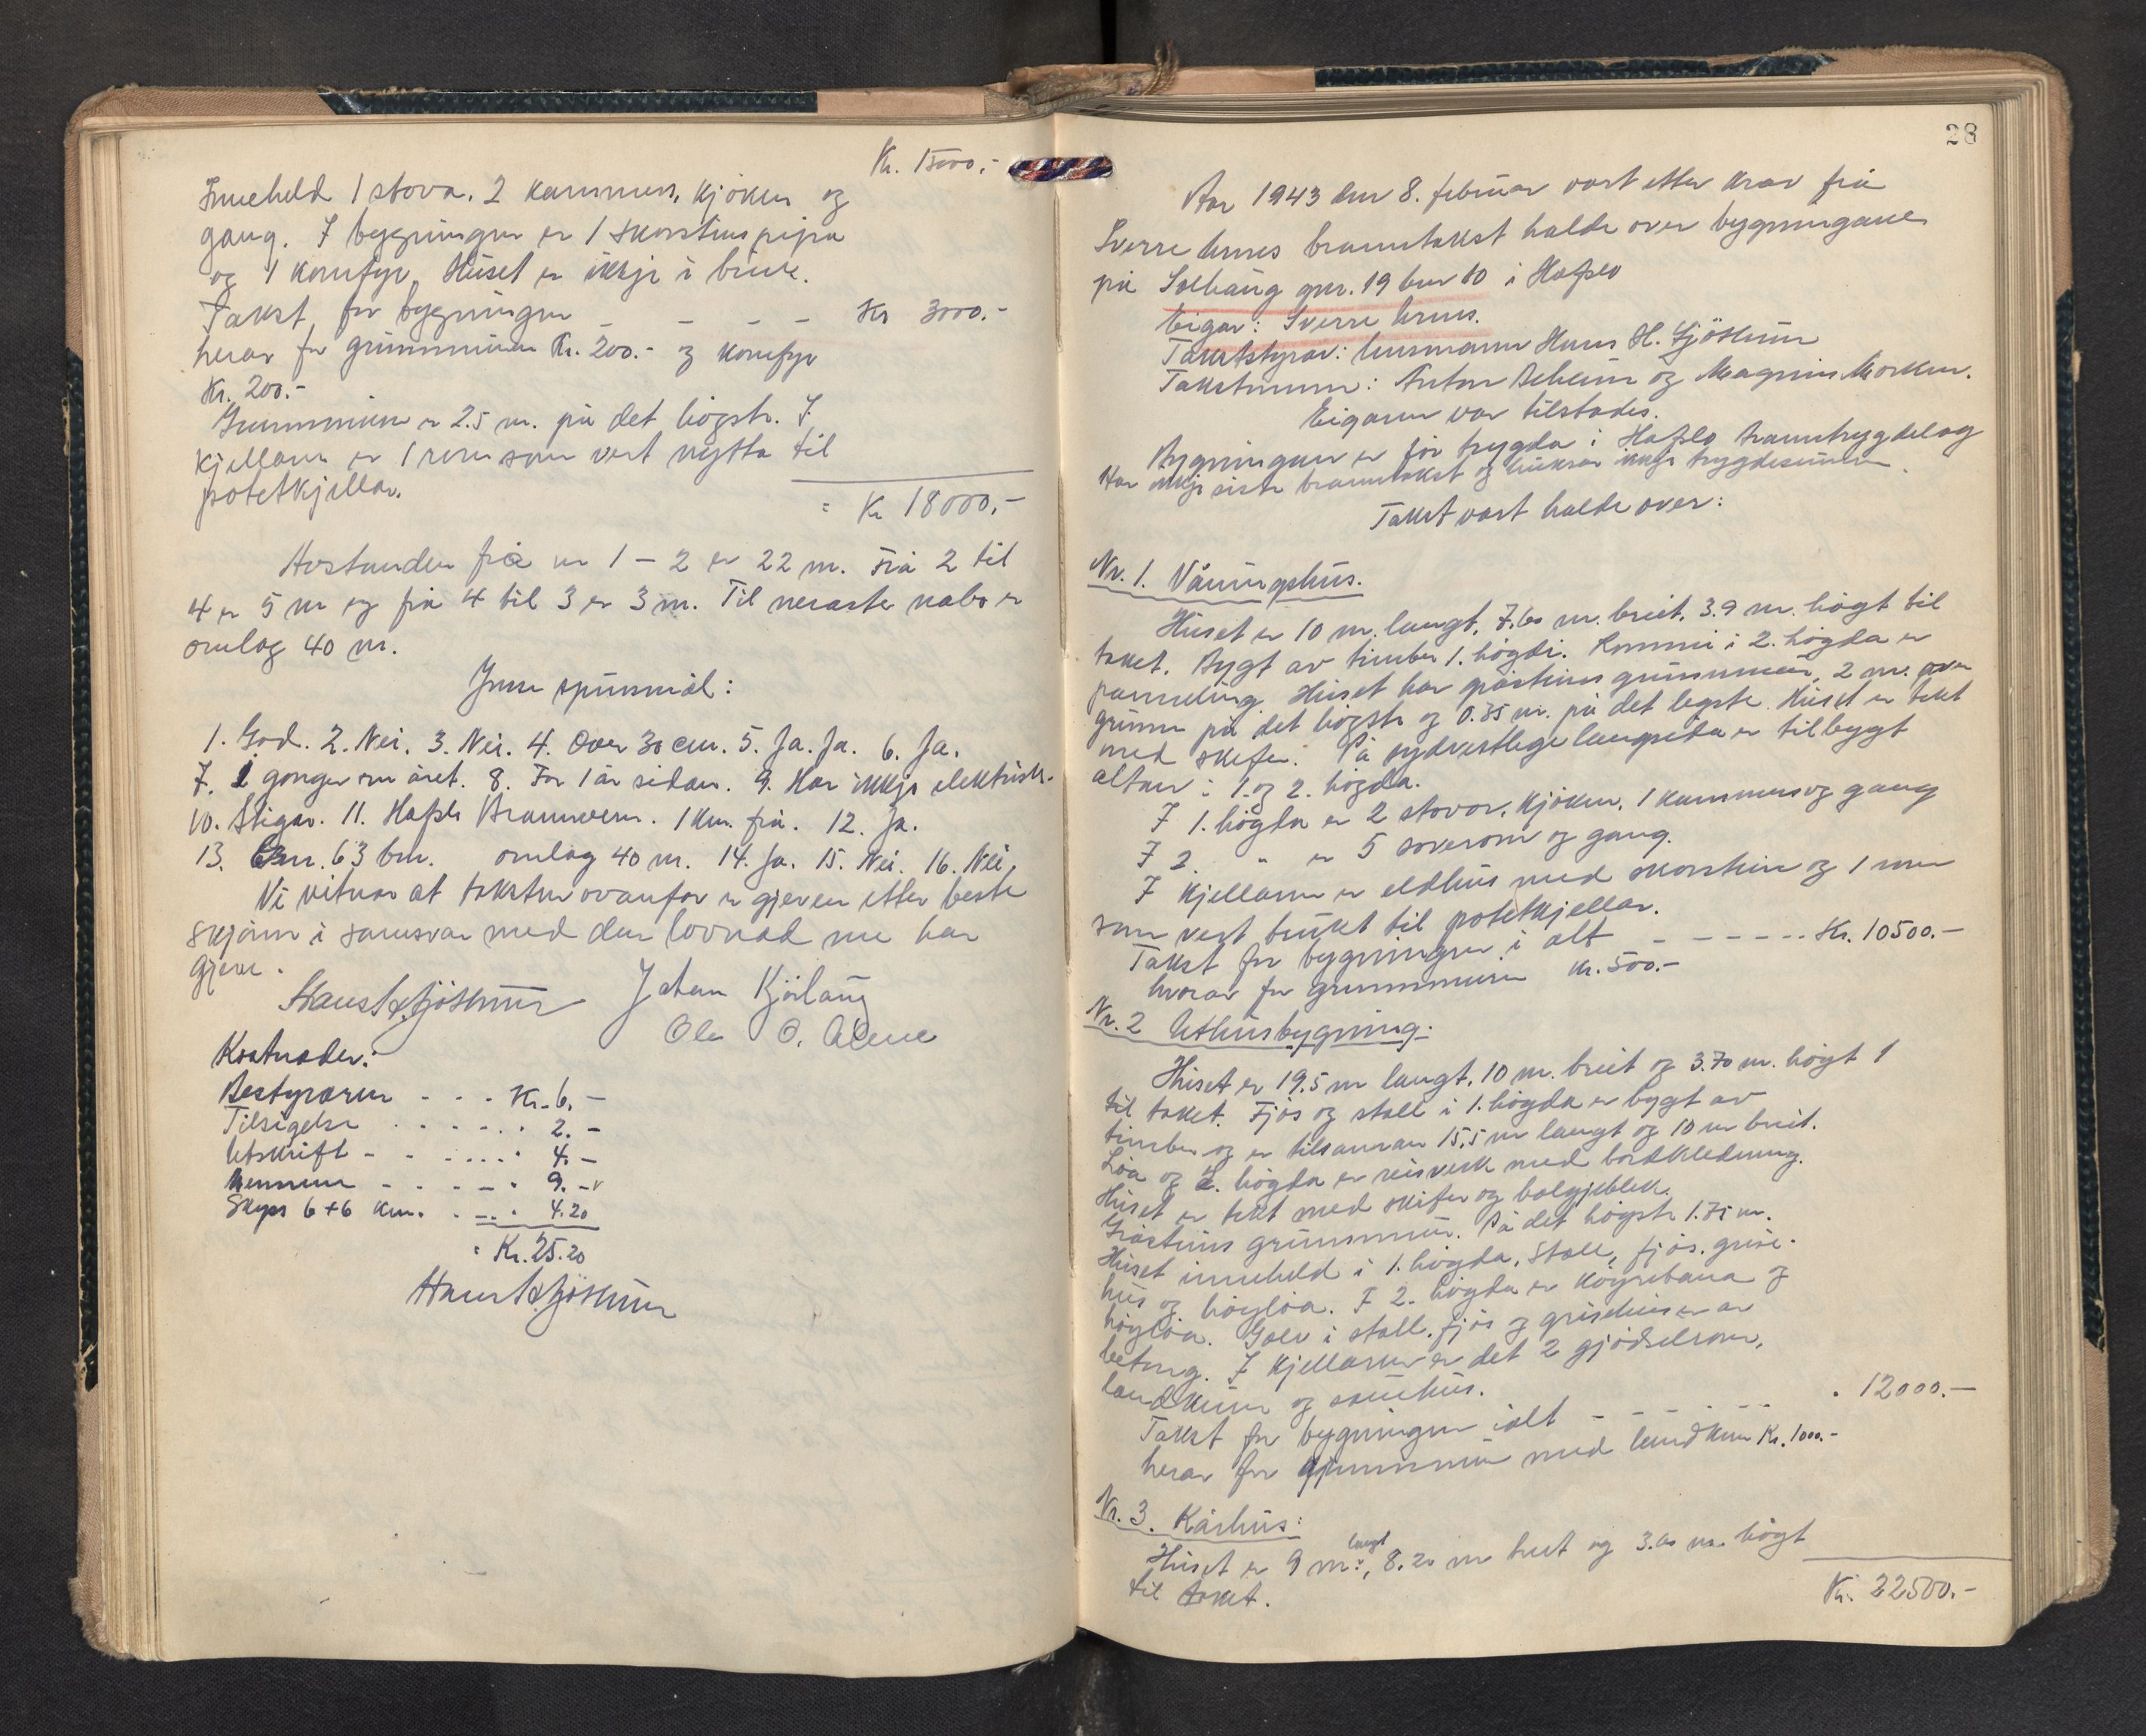 Kr. 15000,-
Inneheld 1 stova, 2 kammers, kjøken og
gang. I bygningen er 1 skorsteinspipa
og 1 komfyr. Huset er ikkje i bruk.
Takst for bygningen - - - - Kr 3000.-
herav for grunnmuren Kr. 200.- og komfyr
Kr. 200.-
Grunnmuren er 2.5 m. på det høgste. I
kjellaren er 1 rom som vert nytta til
potetkjellar.
= Kr 18000,-
Avstanden frå nr 1 - 2 er 22 m. Frå 2 til
4 er 5 m og frå 4 til 3 er 3 m. Til neraste nabo er
omlag 40 m.
Ymse spursmål:
1. God. 2. Nei. 3. Nei. 4. Over 30 cm. 5. Ja. Ja. 6. Ja.
7. 2 gonger om året. 8. For 1 år sidan. 9. Har ikkje elektrisk.
10. Stigar. 11. Hafslo Brannvern. 1 km. frå. 12. Ja.
13. Gnr. 63 bnr. omlag 40 m. 14. Ja. 15. Nei. 16. Nei.
Vi vitnar at taksten ovanfor er gjeven etter beste
skjønn i samsvar med den lovnad me har
gjeve.
Hans H. Sjøthun Johan Kjørlaug
Ole O. Alme
Kostnader:
Bestyraren - - - Kr. 6. -
Tilsigelse . . . . . . " 2. -
Utskrift - - . . . . " 4. -
Mennene - - - - - " 9. -
Skyss 6+6 km. . - . . " 4.20
= Kr. 25.20
Hans H. Sjøthun
28
Aar 1943 den 8. februar vart etter krav frå
Sverre Urnes branntakst halde over bygningane
på Solhaug gnr. 19 bnr 10 i Hafslo
Eigar: Sverre Urnes.
Takststyrar: lensmann Hans H. Sjøthun
Takstmenn: Anton Beheim og Magnus Morken.
Eigaren var tilstades.
Bygningane er før trygda i Hafslo branntrygdelag
Har ikkje siste branntakst og hugsar ikkje trygdesummen.
Takst vart halde over:
Nr. 1. Våningshus.
Huset er 10 m. langt, 7.60 m. breit, 3.9 m. høgt til
taket. Bygt av timber 1. høgdi. Rommi i 2. høgda er
panneling. Huset har gråsteins grunnmur, 2 m. over
grunn på det høgste og 0.35 m. på det legste. Huset er tekt
med skifer. På sydvestlege langsida er tilbygt
altan i 1. og 2. høgda.
I 1. høgda er 2 stovor, kjøken, 1 kammers og gang
I 2. " er 5 soverom og gang.
I kjellaren er eldhus med skorstein og 1 rom
som vert brukt til potetkjellar.
Takst for bygningen i alt - - - - - - . . Kr. 10500.-
hvorav for grunnmuren Kr. 500.-
Nr. 2 Uthusbygning.
Huset er 19.5 m langt, 10 m. breit og 3.70 m. høgt
til taket. Fjøs og stall i 1. høgda er bygt av
timber og er tilsaman 15,5 m langt og 10 m breit.
Løa og 2. høgda er reisverk med bordkledning.
Huset er tekt med skifer og bølgjeblek.
Gråsteins grunnmur. På det høgste 1.75 m.
Huset inneheld i 1. høgda, stall, fjøs, grise-
hus og høyløa. I 2. høgda er køyrebana og
høyløa. Golv i stall, fjøs og grisehus er av
betong. I kjellaren er det 2 gjødselrom,
landkum og sauehus.
Takst for bygningen ialt - - - - . - . . " 12000.-
herav for grunnmur med landkum Kr. 1000.-
Nr. 3. Kårhus:
Huset er 9 m. langt, 8.20 m breit og 3.60 m. høgt
til taket.
Kr. 22500.-